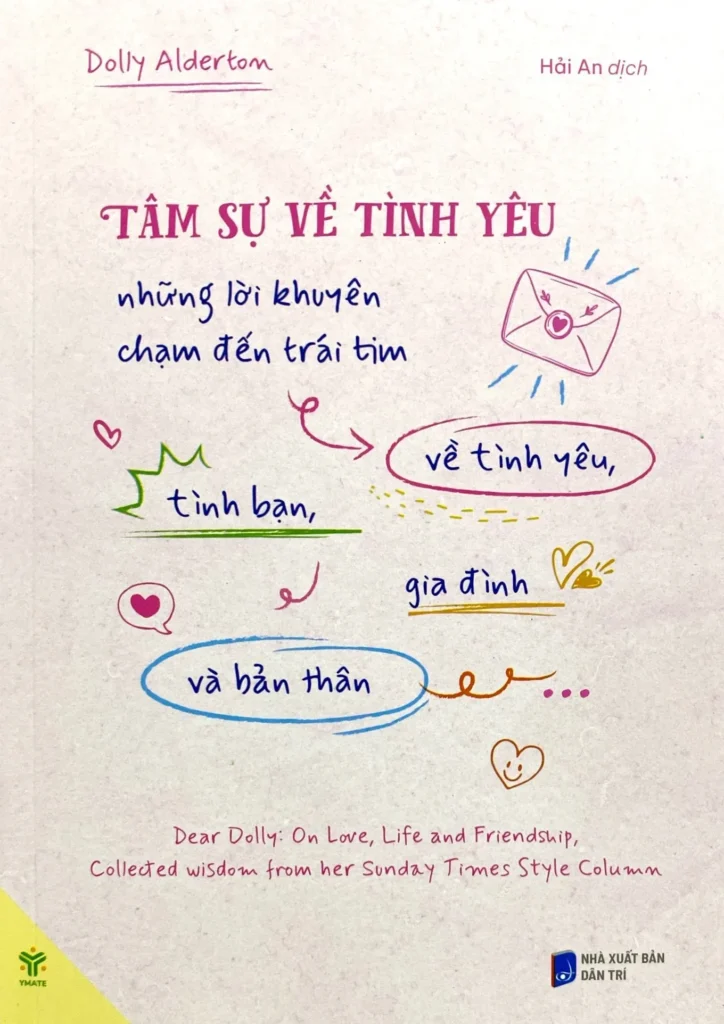 Dolly Alderton
Hải An dịch
TÂM SỰ VỀ TÌNH YÊU
những lời khuyên
chạm đến trái tim
về tình yêu,
tình bạn,
gia đình
và bản thân
...
Dear Dolly: On Love, Life and Friendship,
Collected wisdom from her Sunday Times Style Column
YMATE
NHÀ XUẤT BẢN
DÂN TRÍ